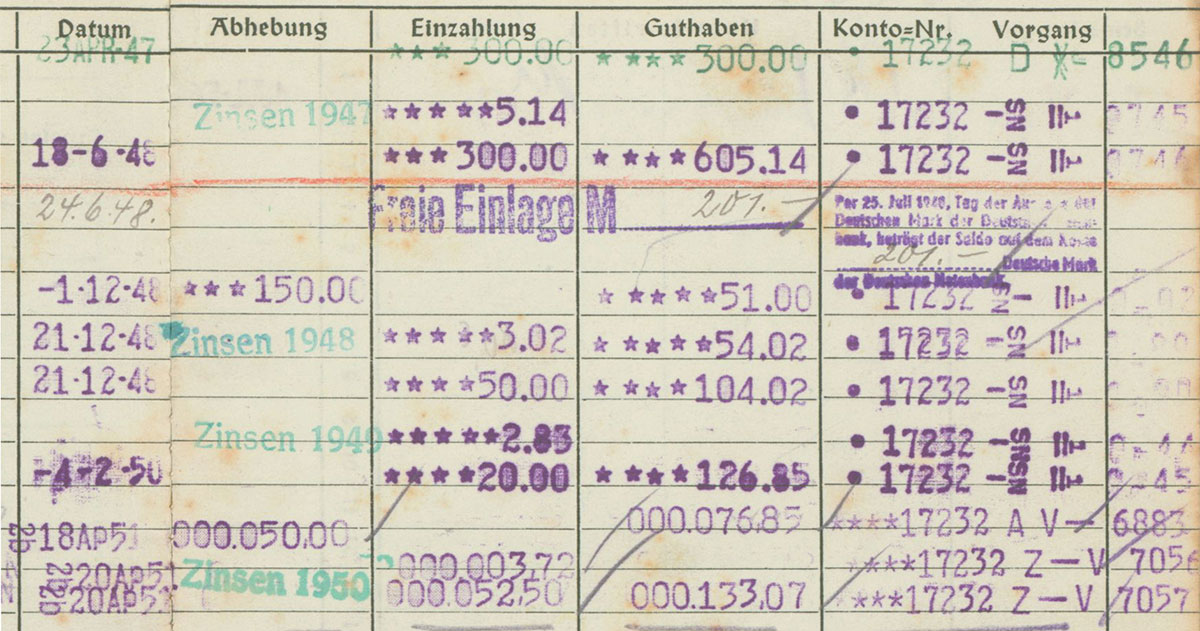 Datum Abhebung Einzahlung Guthaben Konto=Nr. Vorgang
23APR-47 ***300.00 ****300.00 • 17232 D 8546
Zinsen 1947 *****5.14 • 17232 – SN II
18-6-48 ***300.00 ****605.14 • 17232 – SN II
24.6.48. Freie Einlage M 201.–
Per 25. Juli 1948, Tag der
Deutschen Mark der
bank, beträgt der Saldo auf dem Konto
201.– Deutsche Mark
der Deutschen Notenbank.
-1-12-48 ***150.00 *****51.00 • 17232 SN – II
21-12-48 Zinsen 1948 *****3.02 *****54.02 • 17232 – SN II
21-12-48 ****50.00 ****104.02 • 17232 – SN II
Zinsen 1949 *****2.83 • 17232 – SN II
-4-2-50 ****20.00 ****126.85 • 17232 – SN II
18AP51 000.050,00 000.076,85 ****17232 A V – 6883
20AP51 Zinsen 1950 000.003,72 ***17232 Z – V 7056
20AP51 000.052,50 000.133,07 ***17232 Z – V 7057